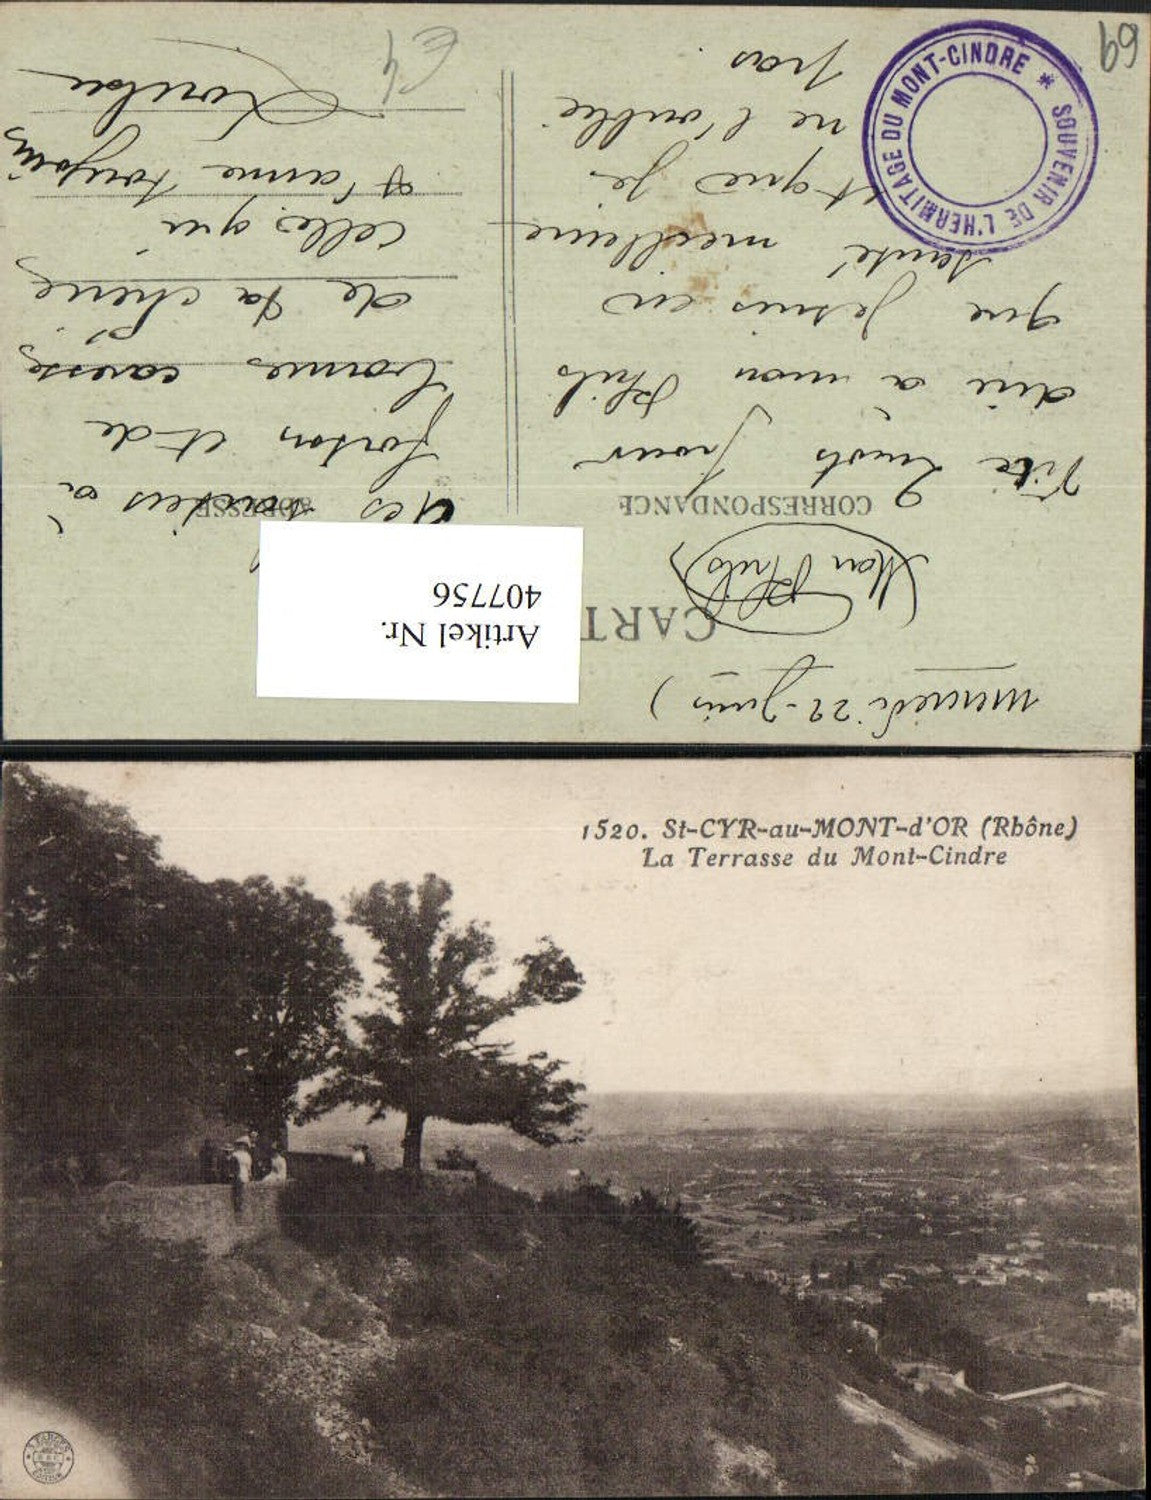 mercredi 22 - Juin)
CART
Mon Phils
CORRESPONDANCE
Vite 2 mots pour
dire à mon Phils
que je suis en
santé meilleure
et que je
ne l'oublie
pas.
ADRESSE
à
forton et de
bonnes caresses
de ta chérie
celle qui
t'aime toujours
Louise
Artikel Nr.
407756
SOUVENIR DE L'HERMITAGE DU MONT-CINDRE *
69
€4
1520. St-CYR-au-MONT-d'OR (Rhône)
La Terrasse du Mont-Cindre